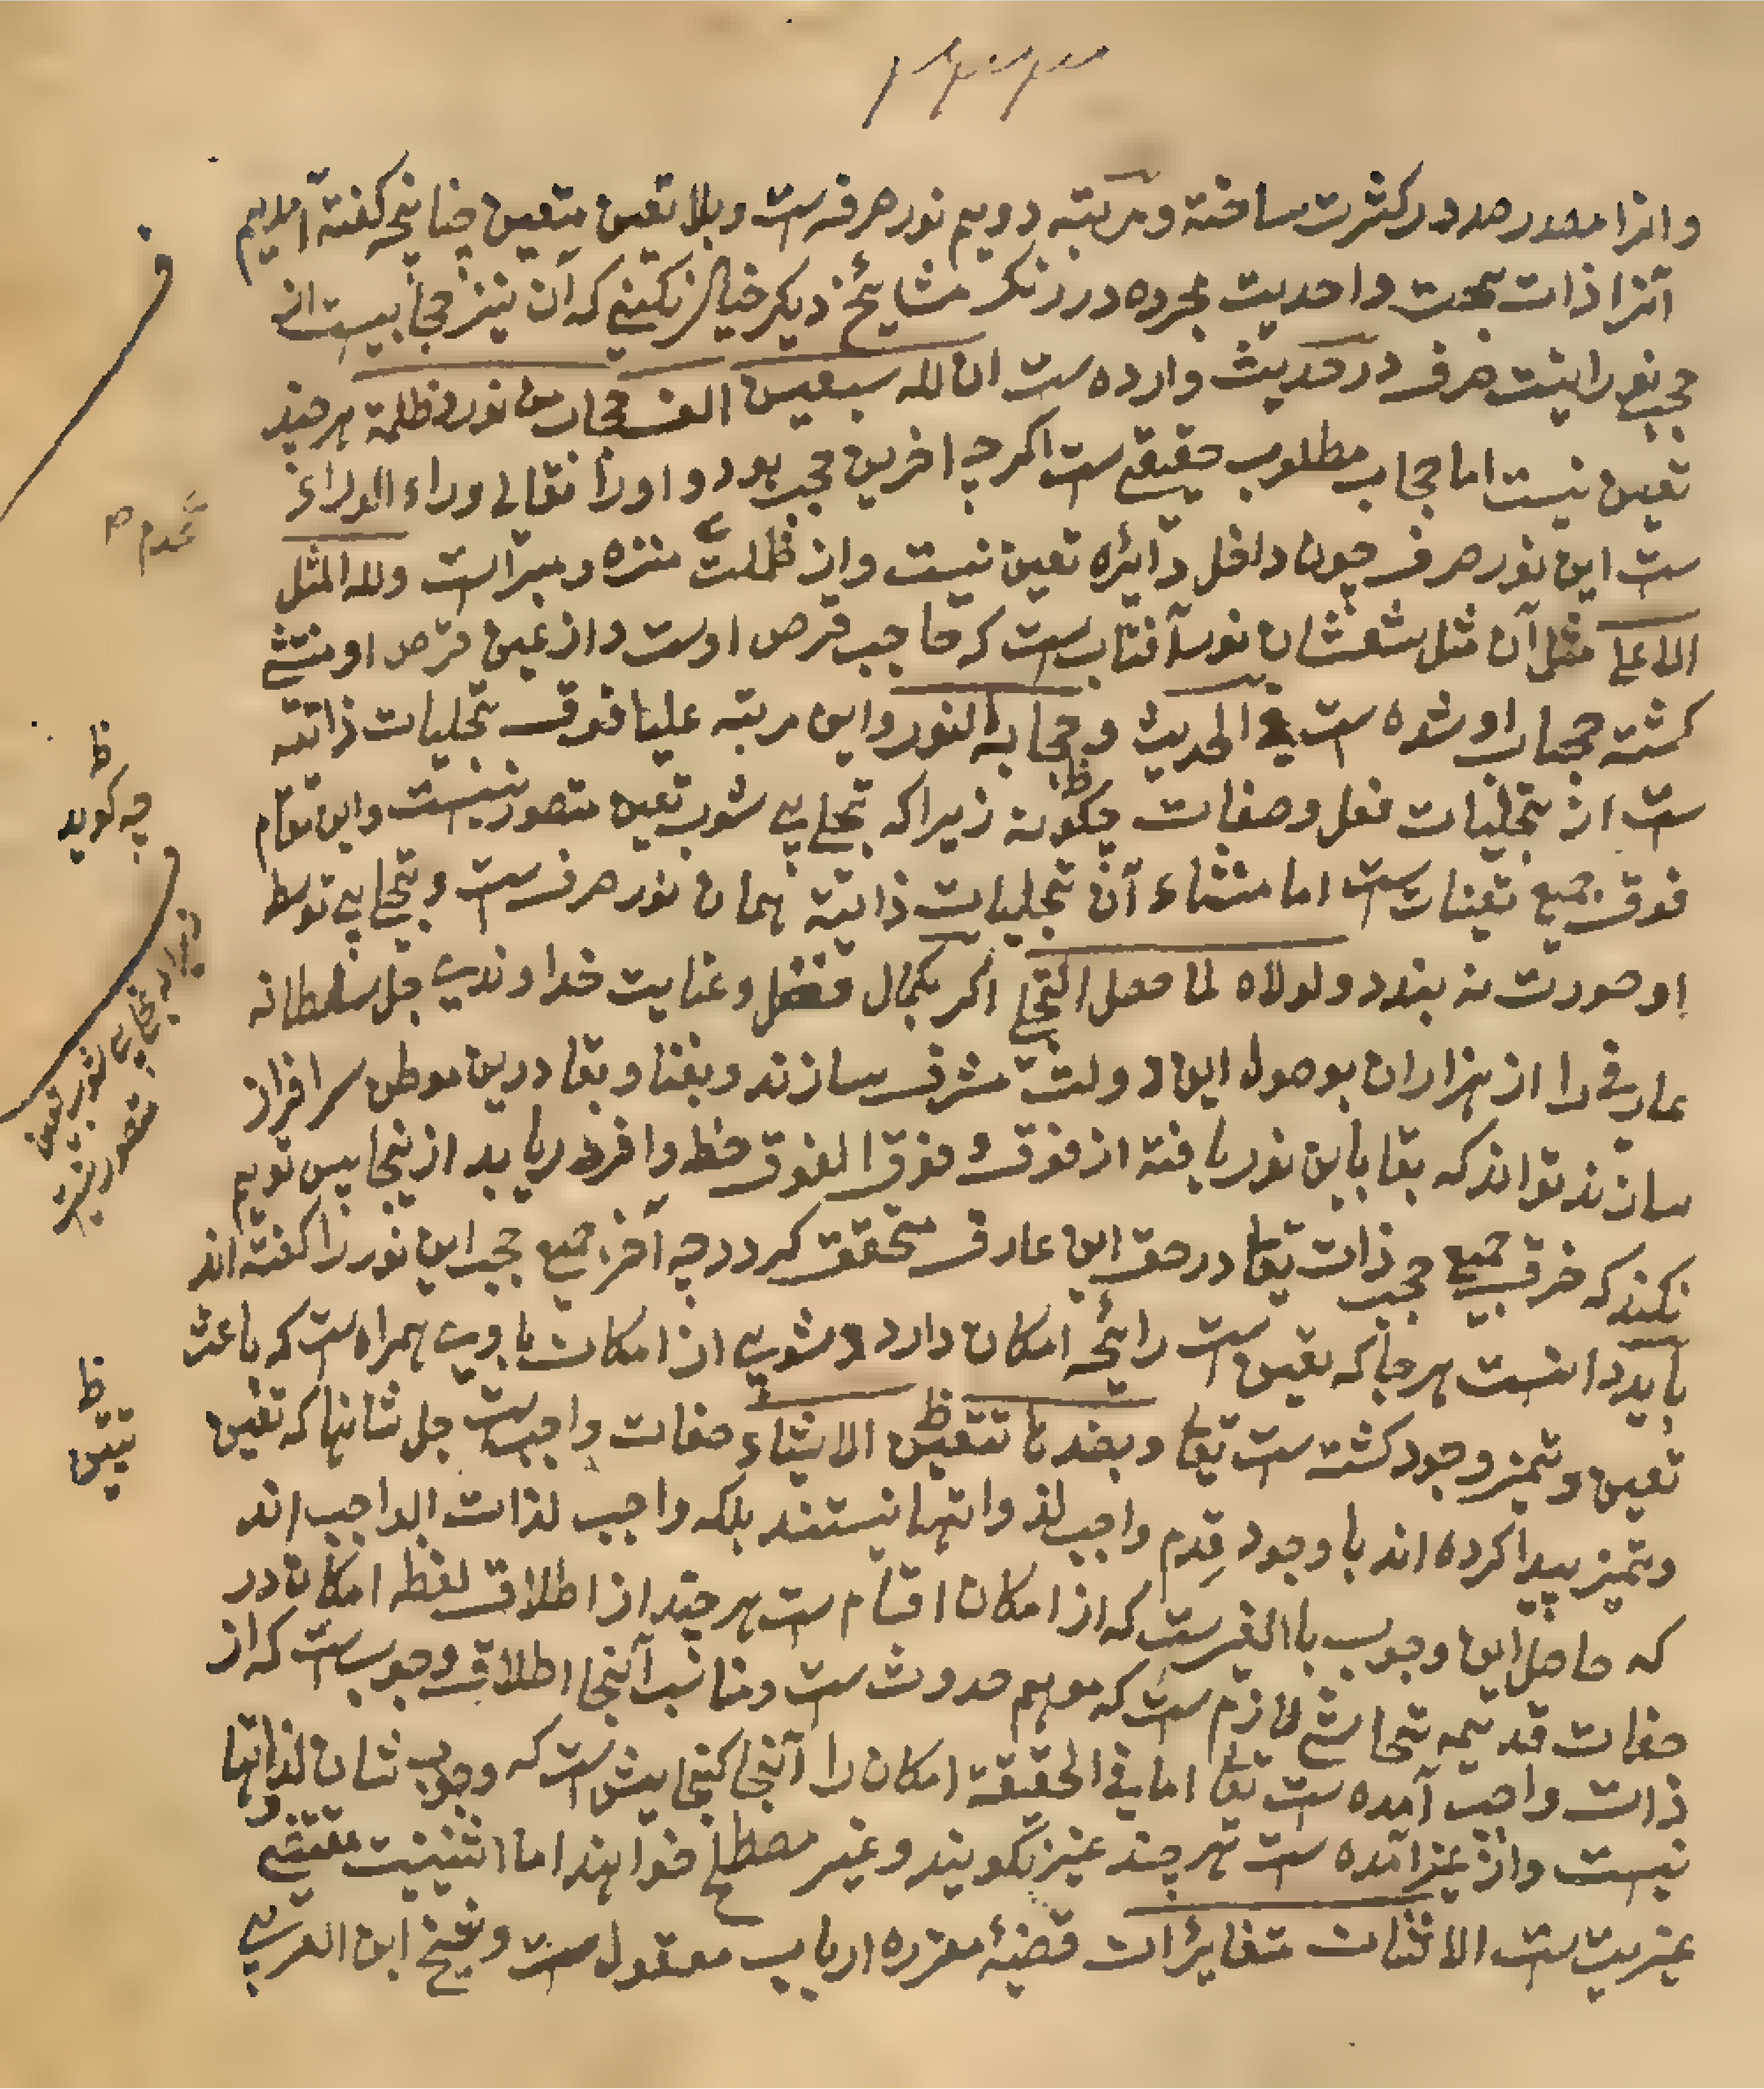 وانرا مصدر صدور کثرت ساخته و مرتبه دویم نور صرفه ست و بلا تعین متعین چنانچه کفته آمدیم
آنرا ذات بحت و احدیت مجرده در رنکر مشایخ دیکر خیال نکنی که آن نیز حجابیست از
حجب نورانیت صرف در حدیث وارده ست ان لله سبعین الف حجاب من نور و ظلمة هر چند
تعین نیست اما حجاب مطلوب حقیقی ست اکر چه اخرین حجب بود و اورا تعالی وراء الوراء
ست این نور صرف چون داخل دایٔره تعین نیست و از ظلمت منزه و مبراست ولله المثل
الاعلی مثل آن مثل شعشان نور آفتاب ست که حاجب قرص اوست و از عین قرص او منتشی
کشته حجاب او شوه ست فی الحدیث و حجابه النور و این مرتبه علیا فوق تجلیات ذاتیه
ست از تجلیات فعل و صفات چکونه زیراکه تجلی بی شوب تعین متصور نیست و این مقام
فوق جمیع تعینات ست اما منشاء آن تجلیات ذاتیة همان نور صرف ست و تجلی بی توسط
او صورت نه بندد ولولاه لما حصل التجلی اکر بکمال فضل و عنایت خداوندی جل سلطانه
عارفی را از هزاران بوصول این دولت مشرف سازند و بفنا و بقا درین موطن سرافراز
سازند تواند که بقا باین نور یافته از فوق و فوق الفوق حظ وافر دریابد ازینجا پس توهم
نکند که خرق جمیع حجب ذات تعا در حق این عارف متحقق کردد چه آخر جمیع حجب این نور را کفته اند
باید دانست هرجا که تعین ست رایٔحه امکان دارد و شوبی از امکان با وی همراه ست که باعث
تعین و تمیز وجود کشته ست تعا و بضدها تتعین الاشیاء صفات واجب ست جل شانها که تعین
و تمیز پیدا کرده اند با وجود قِدم واجب لذواتها نیستند بلکه واجب لذات الواجب اند
که حاصل این وجوب بالغیرست که از امکان اقسام ست هر چند از اطلاق لفظ امکان در
صفات قدیمه تحاشی لازم ست که موهم حدوث ست و مناسب آنجا اطلاق وجوب ست که از
ذات واجب آمده ست تعا اما فی الحقیقة امکان را آنجا کنجایش ست که وجوب شان لذاتها
نیست و از غیر آمده ست هر چند غیر نکویند و غیر مصطلح خواهند اما اثنینیت مقتضی
غیریت ست الاثنان متغایران قضیهٔ مقرره ارباب معقول ست و شیخ ابن العربی
ظ
چه کوید
زیراکه تجلی بی شوب تعین
متصور نیست
ظ
تتبین